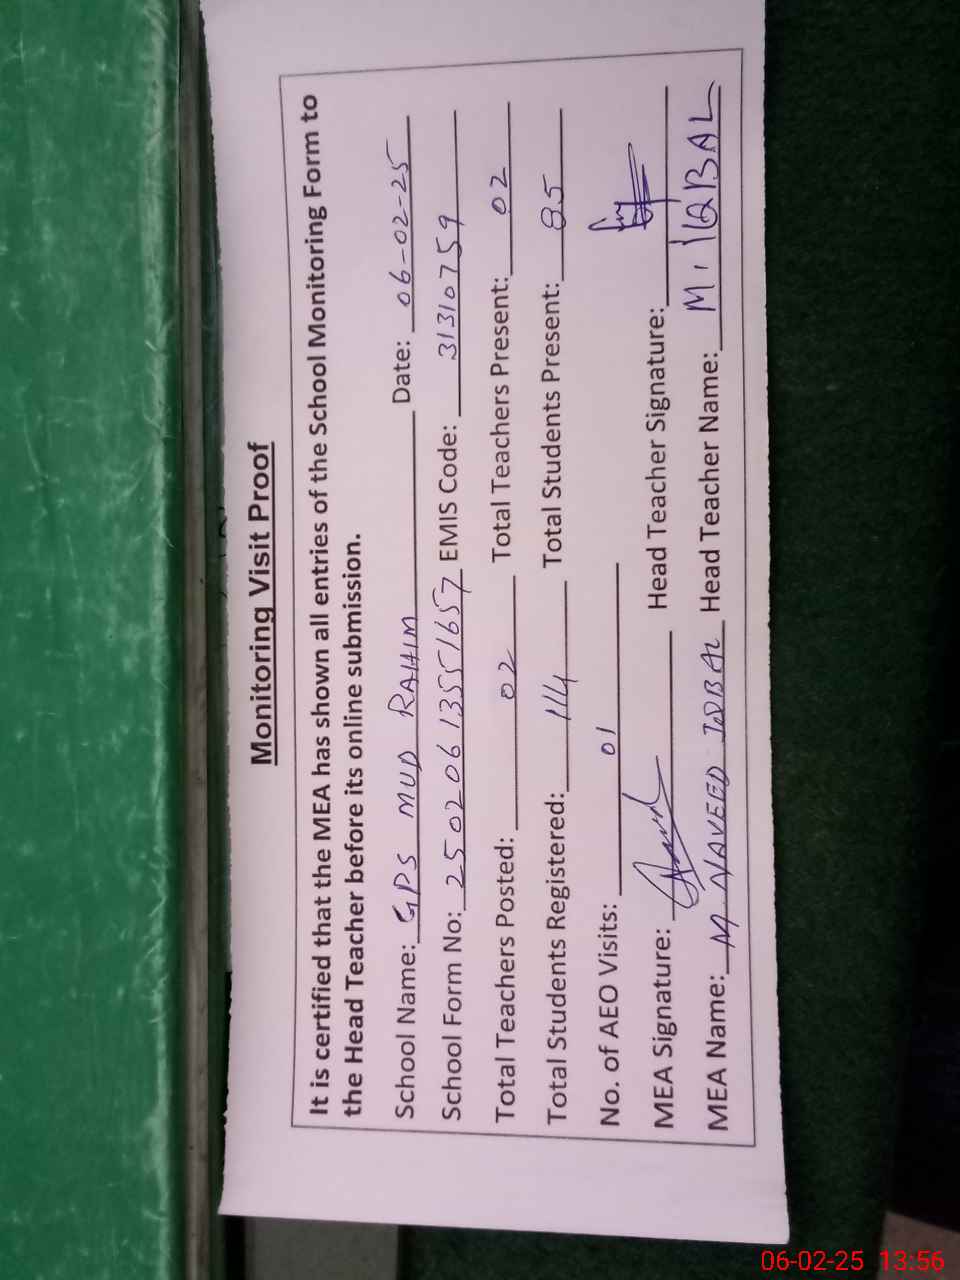 Monitoring Visit Proof
It is certified that the MEA has shown all entries of the School Monitoring Form to
the Head Teacher before its online submission.
School Name: GPS MUD RAHIM Date: 06-02-25
School Form No: 25020613551657 EMIS Code: 31310759
Total Teachers Posted: 02 Total Teachers Present: 02
Total Students Registered: 114 Total Students Present: 85
No. of AEO Visits: 01
MEA Signature: Head Teacher Signature:
MEA Name: M NAVEED IQBAL Head Teacher Name: M. IQBAL
06-02-25 13:56